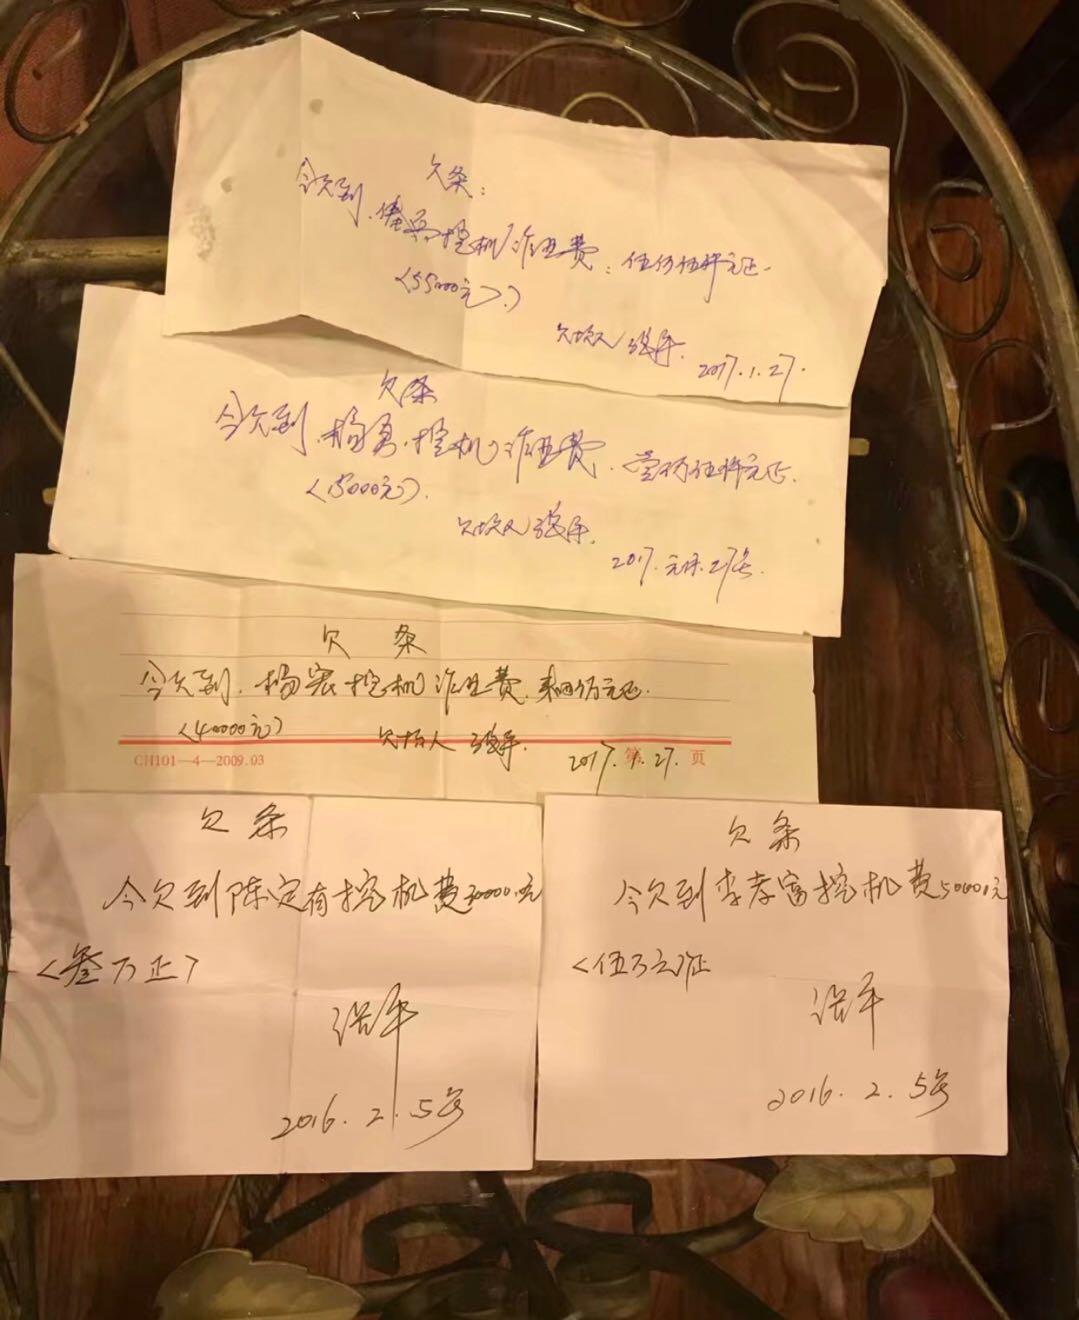 欠条:
今欠到.挖机作业费:伍万伍仟元正.
<55000元>.)
欠款人
2017.1.27.
欠条
今欠到.杨勇.挖机作业费.壹万伍仟元正.
<15000元>.
欠款人
2017.元月.27号.
欠条
今欠到.杨宏挖机作业费.肆万元正.
<40000元>
欠款人
2017.1.27.
CH101—4—2009.03
第 页
欠条
今欠到陈定有挖机费30000.元
<叁万正>
2016.2.5号
欠条
今欠到李孝富挖机费50000元
<伍万元正
2016.2.5号